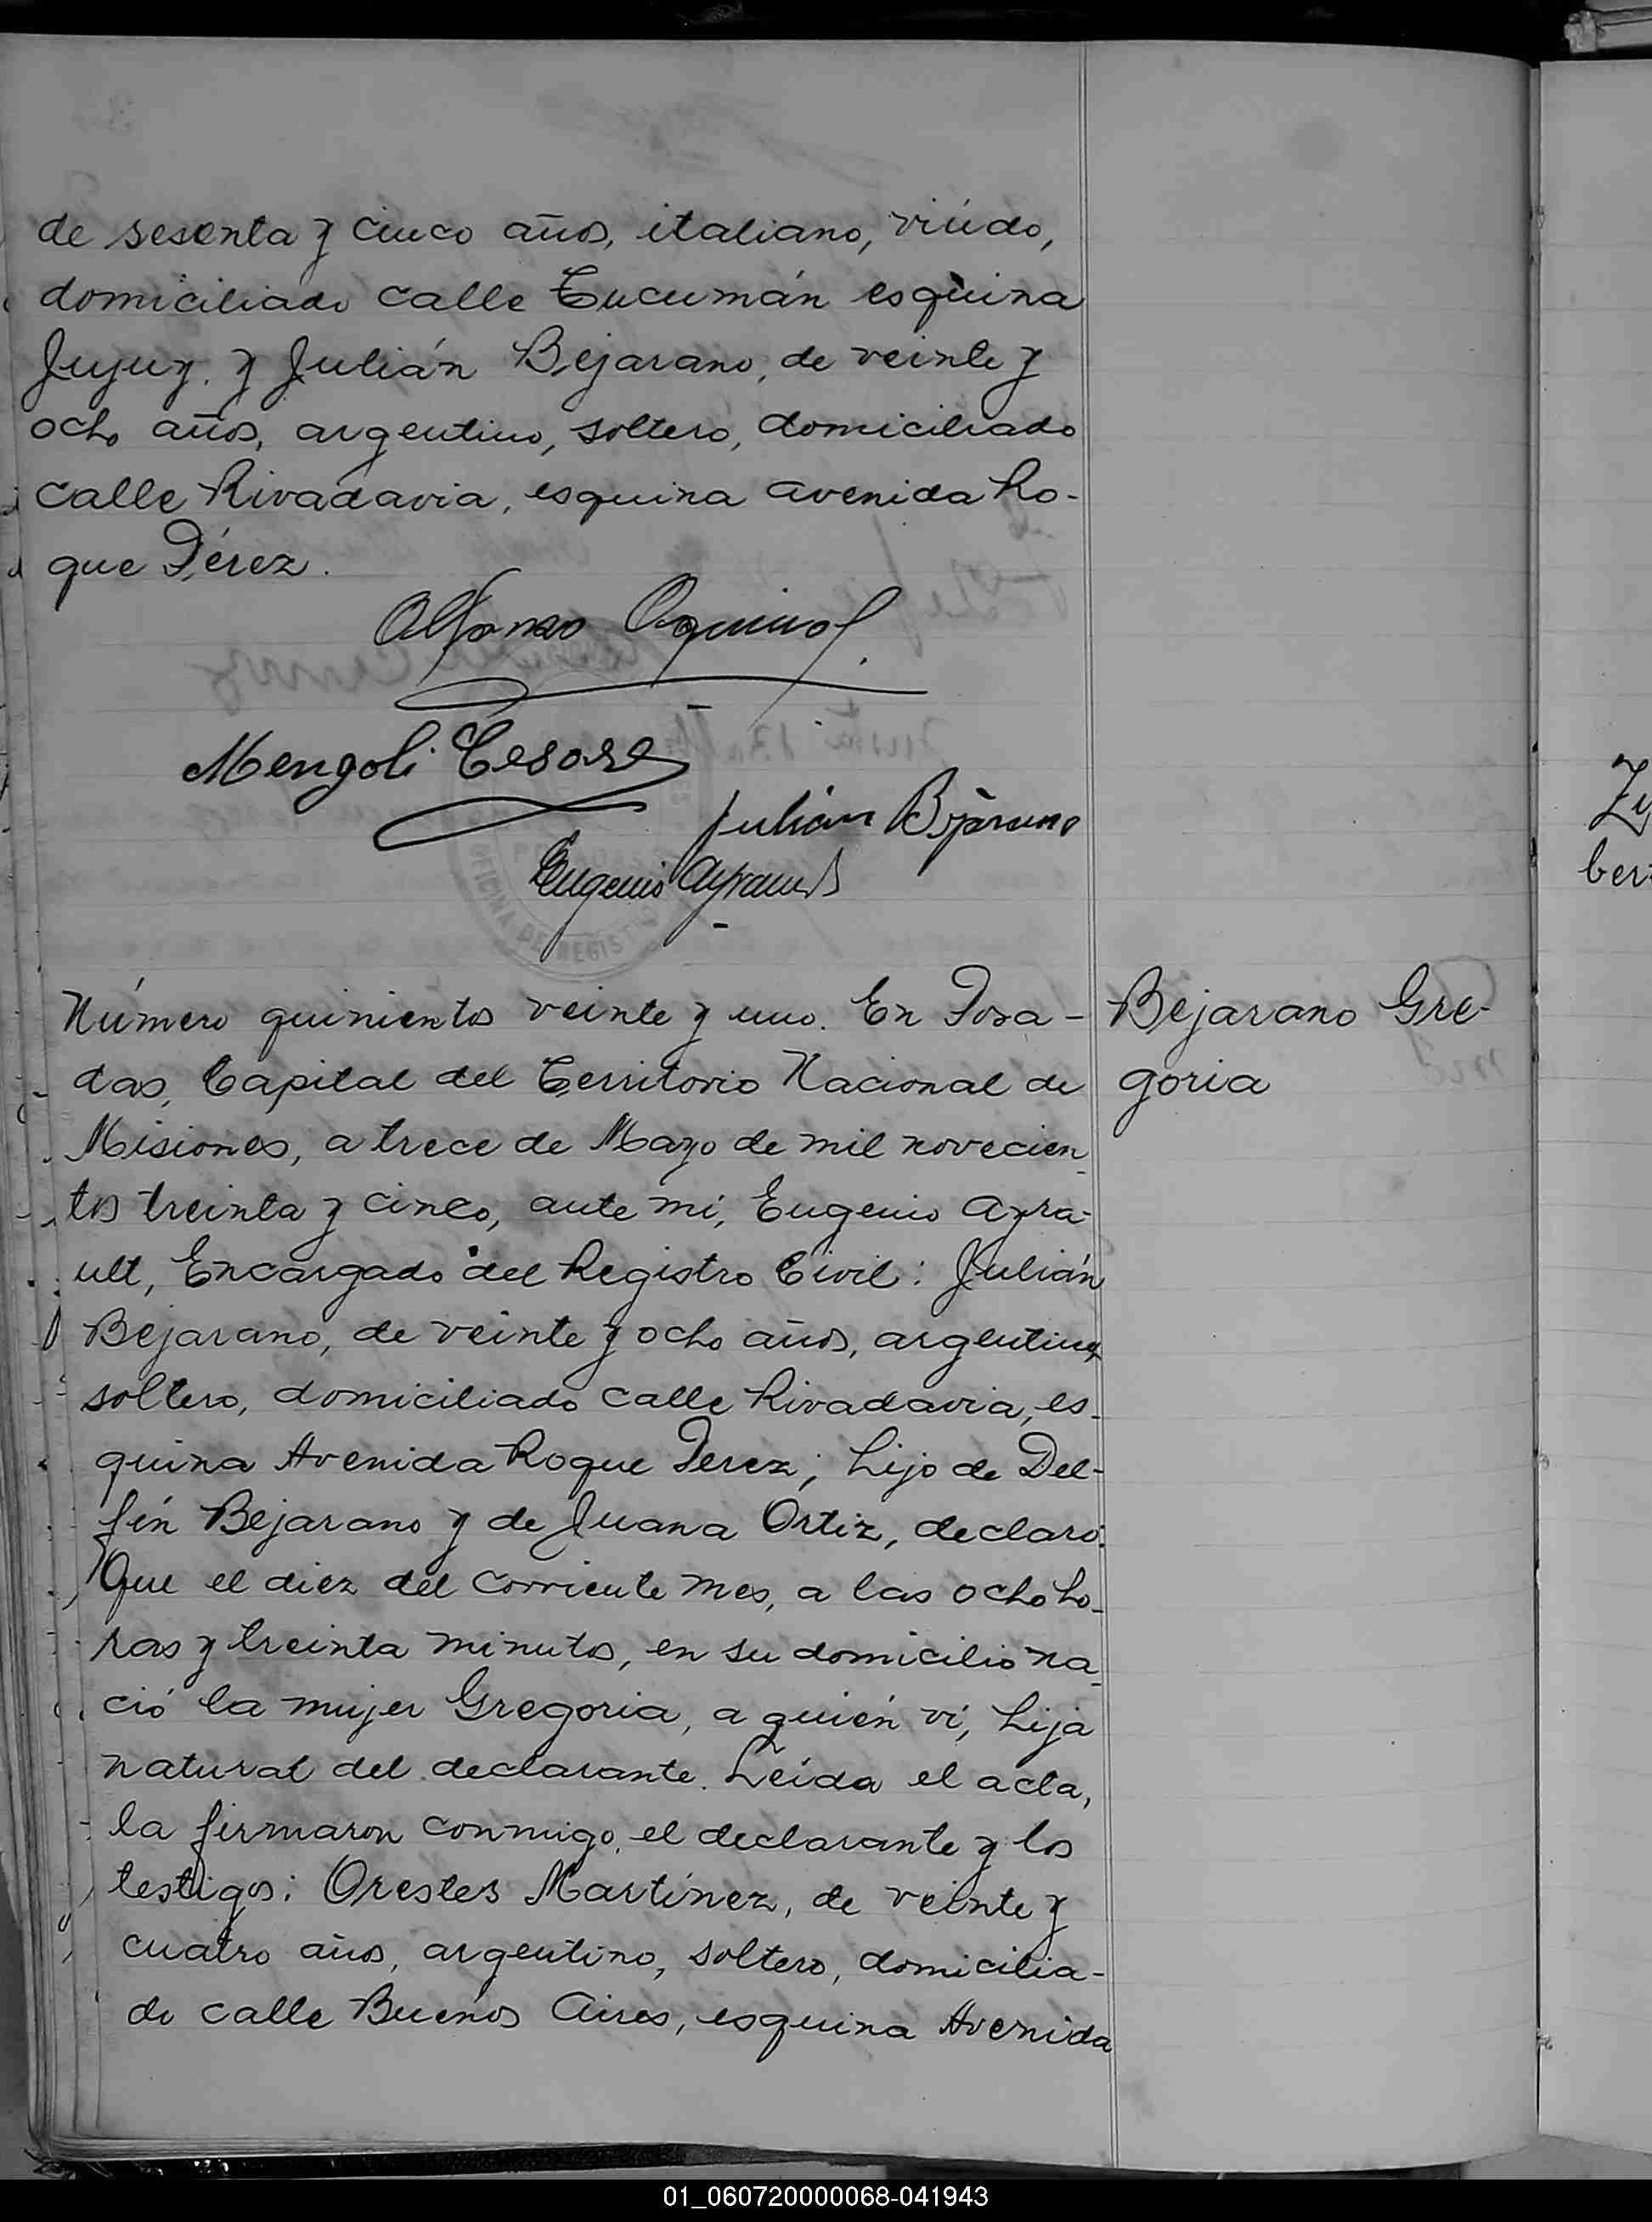 de sesenta y cinco años, italiano, viúdo,
domiciliado calle Tucumán esquina
Jujuy, y Julián Bejarano, de veinte y
ocho años, argentino, soltero, domiciliado
calle Rivadavia, esquina avenida Ro-
que Pérez.
Alfonso Aquino
Mengoli Cesare
Julián Bejarano
Eugenio Ayrault
OFICINA DE REGISTRO
Número quinientos veinte y uno. En Posa-
das, Capital del Territorio Nacional de
Misiones, a trece de Mayo de mil novecien-
tos treinta y cinco, ante mí, Eugenio Ayra-
ult, Encargado del Registro Civil: Julián
Bejarano, de veinte y ocho años, argentino,
soltero, domiciliado calle Rivadavia, es-
quina Avenida Roque Perez; hijo de Del-
fín Bejarano y de Juana Ortiz, declaró:
Que el diez del corriente mes, a las ocho ho-
ras y treinta minutos, en su domicilio na-
ció la mujer Gregoria, a quién ví, hija
natural del declarante. Leída el acta,
la firmaron conmigo, el declarante y los
testigos: Orestes Martínez, de veinte y
cuatro años, argentino, soltero, domicilia-
do calle Buenos Aires, esquina Avenida
Bejarano Gre-
goria
ber
01_060720000068-041943